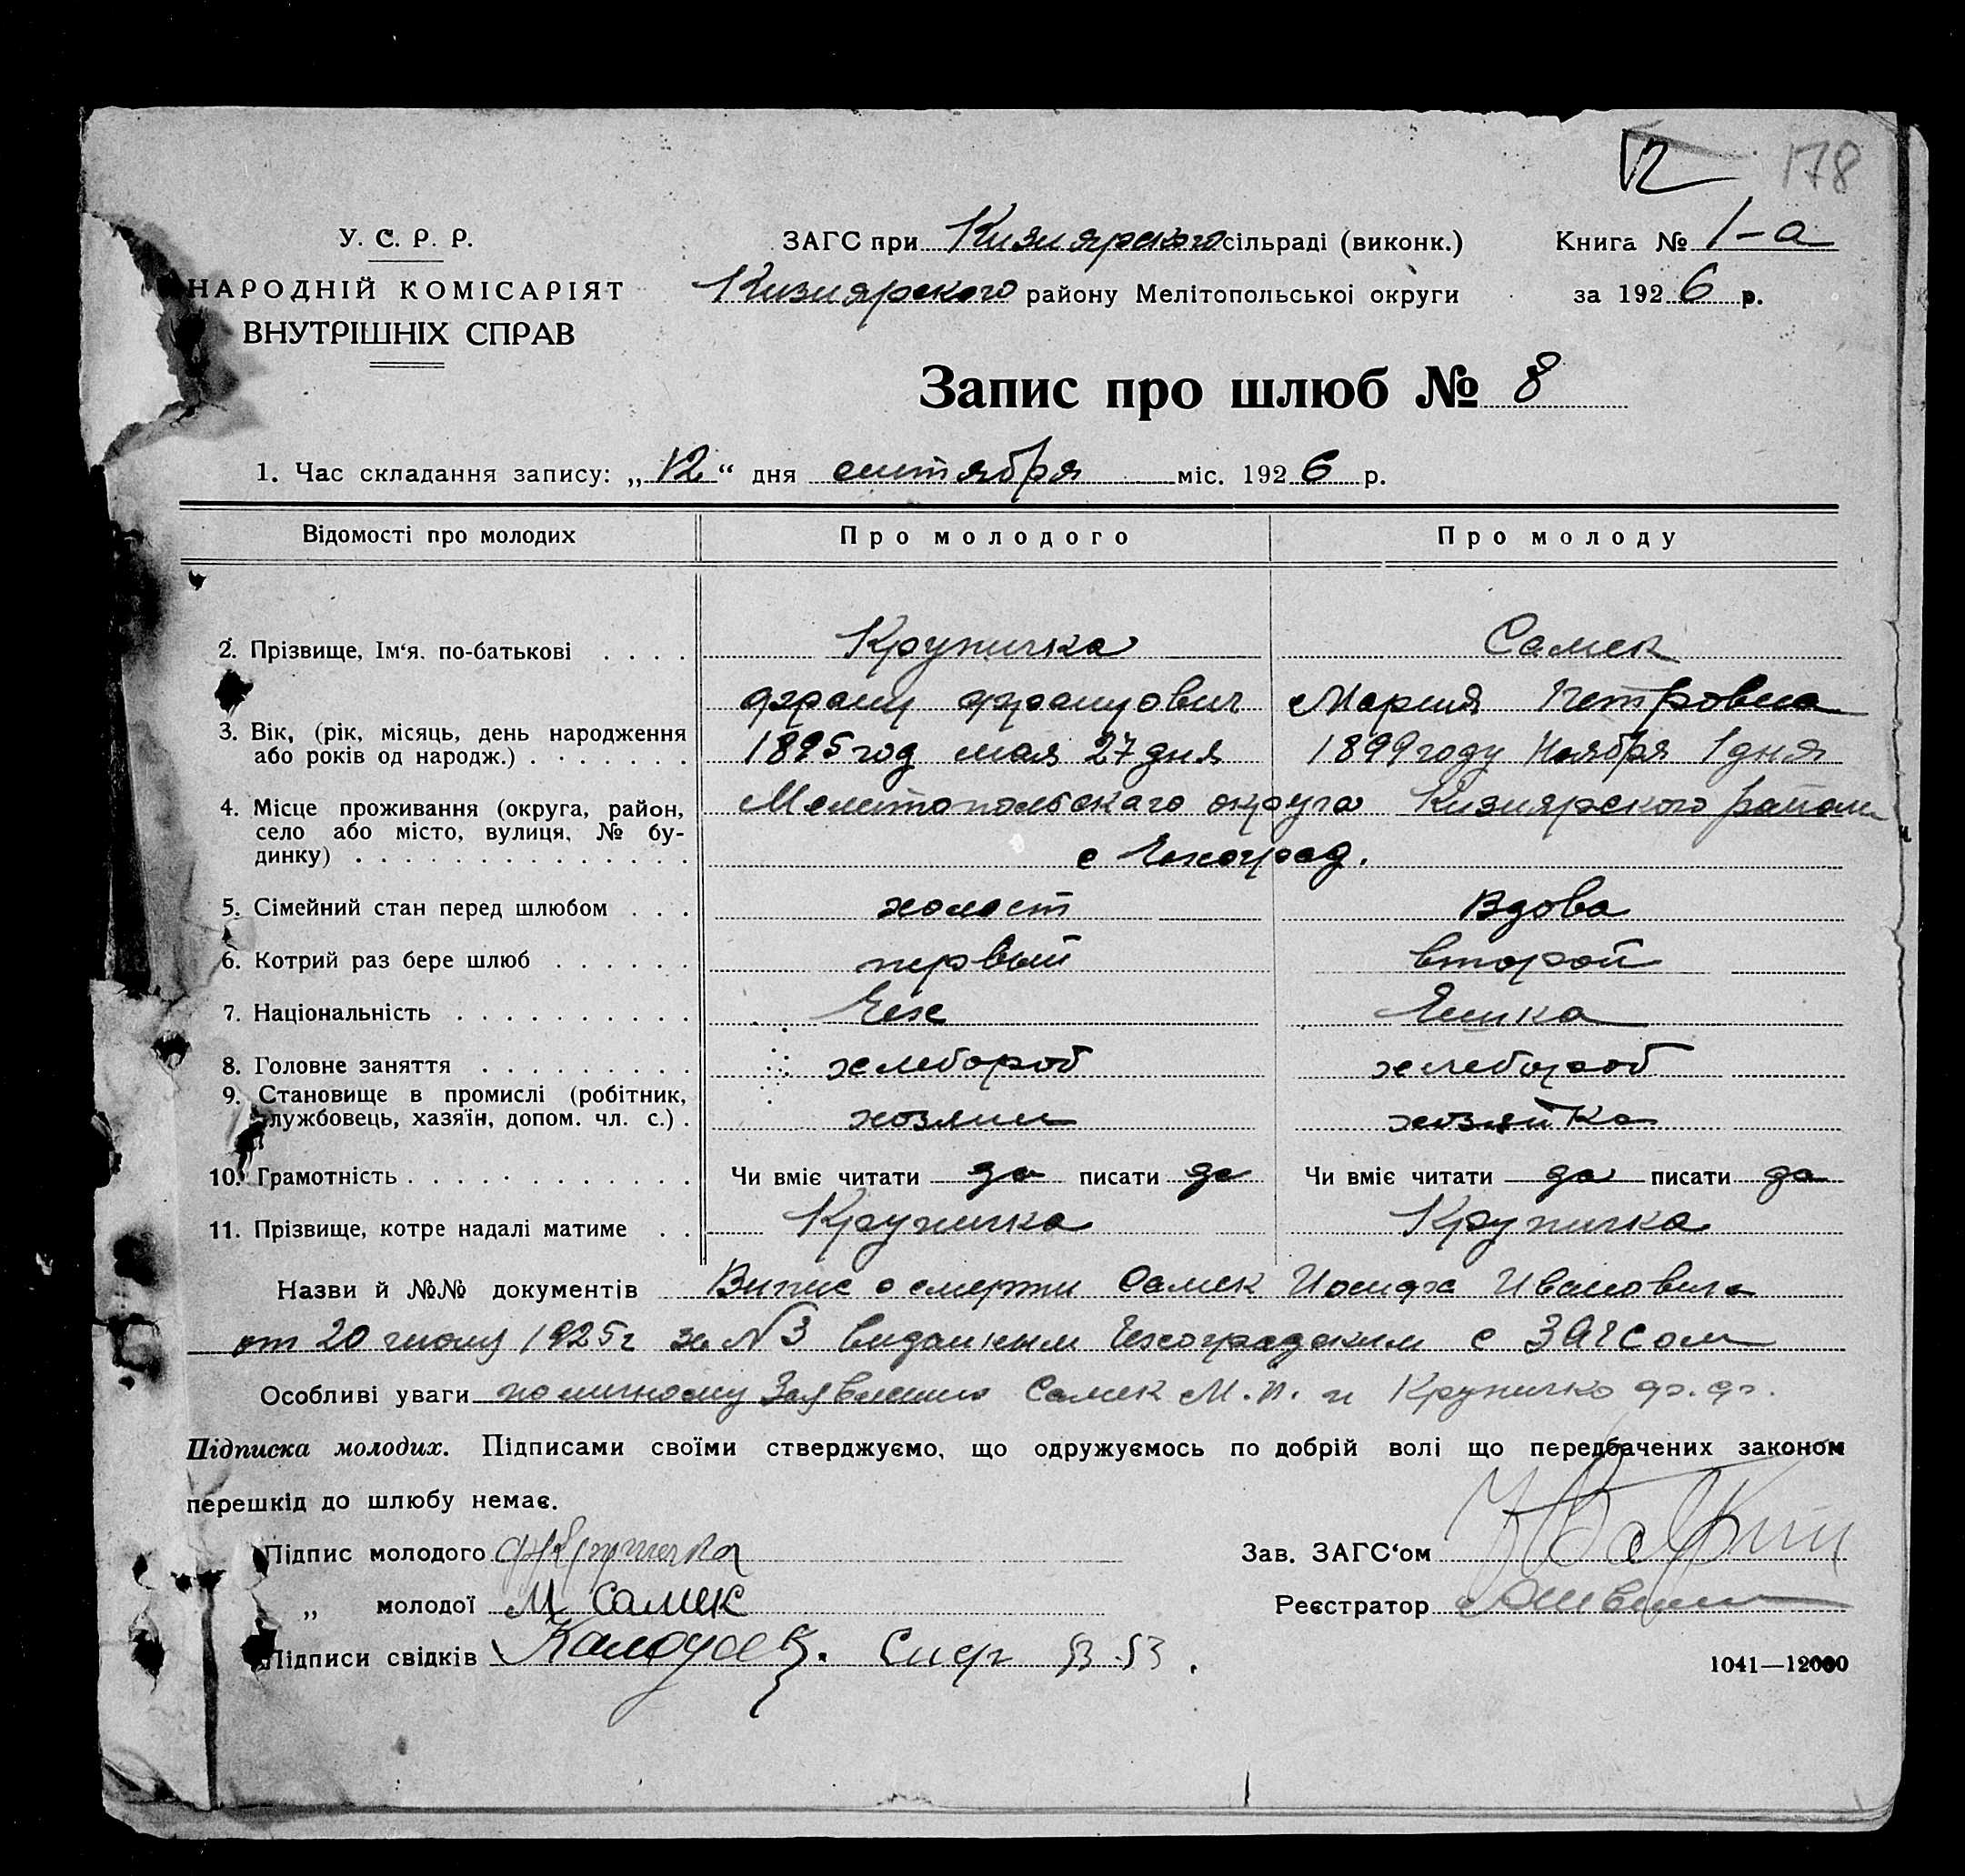 12 178
У. С. Р. Р.
НАРОДНІЙ КОМІСАРІЯТ
ВНУТРІШНІХ СПРАВ
ЗАГС при Кизиярского сільраді (виконк.)
Кизиярского району Мелітопольської округи
Книга № 1-а
за 1926 р.
Запис про шлюб № 8
1. Час складання запису: „12“ дня сентября міс. 1926 р.
Відомості про молодих Про молодого Про молоду
2. Прізвище, Ім'я. по-батькові Крупичка Самек
франц францович Мария Петровна
3. Вік, (рік, місяць, день народження
або років од народж.) 1895 год мая 27 дня 1899 году Ноября 1 дня
4. Місце проживання (округа, район, Мелитопольскаго округа Кизиярского района
село або місто, вулиця, № бу-
динку) с Чехоград.
5. Сімейний стан перед шлюбом холост Вдова
6. Котрий раз бере шлюб первый второй
7. Національність Чех Чешка
8. Головне заняття хлебороб хлебороб
9. Становище в промислі (робітник,
лужбовець, хазяїн, допом. чл. с.) хозяин хозяйка
10. Грамотність Чи вміє читати да писати да Чи вміє читати да писати да
11. Прізвище, котре надалі матиме Крупичка Крупичка
Назви й №№ документів Випис о смерти Самек Иосифа Ивановича
от 20 1925 г за N 3 виданным Чехоградским с ЗАГСом
Особливі уваги по личному Заявлению Самек М. П. и Крупичко ф. ф.
Підписка молодих. Підписами своїми стверджуємо, що одружуємось по добрій волі що передбачених законом
перешкід до шлюбу немає.
Підпис молодого ф Крупичка Зав. ЗАГС'ом
„ молодої М Самек Реєстратор
Підписи свідків
1041—12000